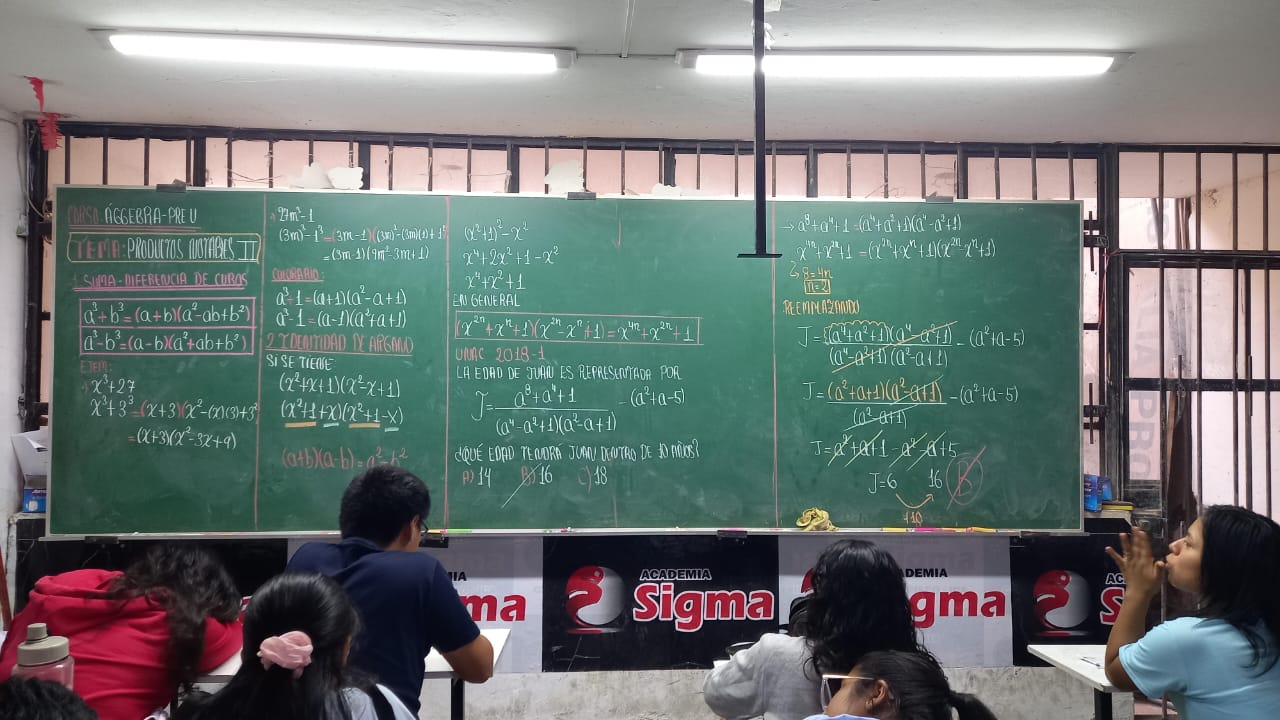 CURSO: ÁGGEBRA-PRE U
TEMA: PRODUCTOS NOTABLES II
SUMA-DIFERENCIA DE CUBOS
a³+b³=(a+b)(a²-ab+b²)
a³-b³=(a-b)(a²+ab+b²)
EJEM:
x³+27
x³+3³=(x+3)(x²-(x)(3)+3²
=(x+3)(x²-3x+9)
27m³-1
(3m)³-1³=(3m-1)(3m)²-(3m)(1)+1²
=(3m-1)(9m²-3m+1)
COROLARIO:
a³+1=(a+1)(a²-a+1)
a³-1=(a-1)(a²+a+1)
2 IDENTIDAD DE ARGAND
SI SE TIENE
(x²+x+1)(x²-x+1)
(x²+1+x)(x²+1-x)
(a+b)(a-b)=a²-b²
(x²+1)²-x²
x⁴+2x²+1-x²
x⁴+x²+1
EN GENERAL
(x²ⁿ+xⁿ+1)(x²ⁿ-xⁿ+1)=x⁴ⁿ+x²ⁿ+1
UNAC 2018-1
LA EDAD DE JUAN ES REPRESENTADA POR
J= a⁸+a⁴+1 / (a⁴-a²+1)(a²-a+1) -(a²+a-5)
¿QUÉ EDAD TENDRÁ JUAN DENTRO DE 10 AÑOS?
A) 14 B) 16 C) 18
→a⁸+a⁴+1=(a⁴+a²+1)(a⁴-a²+1)
x⁴ⁿ+x²ⁿ+1=(x²ⁿ+xⁿ+1)(x²ⁿ-xⁿ+1)
8=4n
n=2
REEMPLAZANDO
J= (a⁴+a²+1)(a⁴-a²+1) / (a⁴-a²+1)(a²-a+1) -(a²+a-5)
J= (a²+a+1)(a²-a+1) / (a²-a+1) -(a²+a-5)
J=a²+a+1-a²-a+5
J=6 16 B
+10
ACADEMIA
Sigma